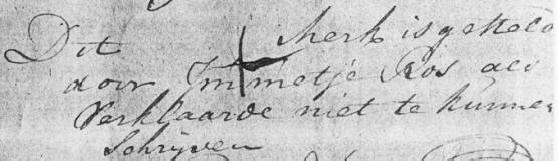 Dit merk is gesteld
door Immetje Ros als
Verklaarde niet te kunnen
Schrijven